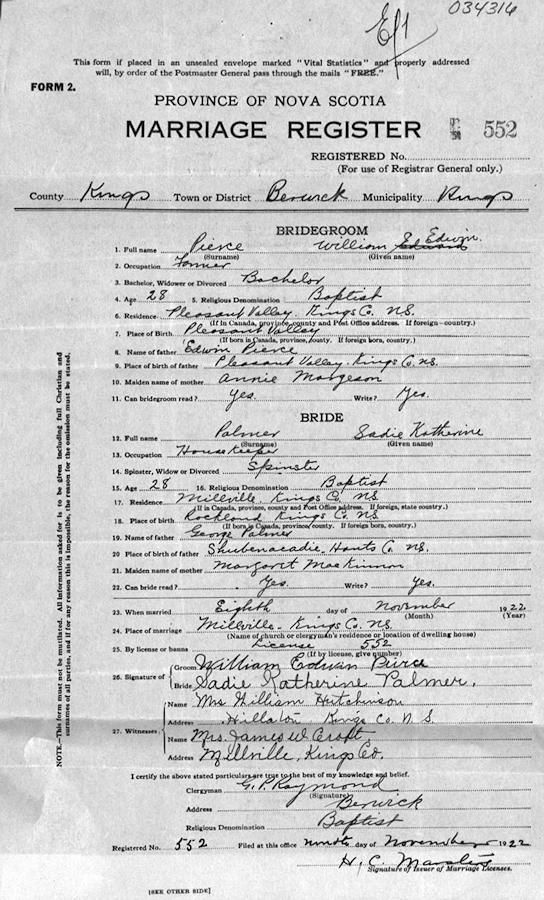 Ef1
034316
This form if placed in an unsealed envelope marked "Vital Statistics" and properly addressed
will, by order of the Postmaster General pass through the mails "FREE."
FORM 2.
PROVINCE OF NOVA SCOTIA
MARRIAGE REGISTER 552
REGISTERED No.
(For use of Registrar General only.)
County Kings Town or District Berwick Municipality Kings
BRIDEGROOM
1. Full name Pierce William E. Edwin.
(Surname) (Given name)
2. Occupation Farmer
3. Bachelor, Widower or Divorced Bachelor
4. Age 28 5. Religious Denomination Baptist
6. Residence Pleasant Valley. Kings Co. NS.
(If in Canada, province, county and Post Office address. If foreign—country.)
7. Place of Birth Pleasant Valley
(If born in Canada, province, county. If foreign born, country.)
8. Name of father Edwin Pierce
9. Place of birth of father Pleasant Valley. Kings Co. NS.
10. Maiden name of mother Annie Margeson
11. Can bridegroom read? Yes. Write? Yes.
BRIDE
12. Full name Palmer Sadie Katherine
(Surname) (Given name)
13. Occupation House Keeper
14. Spinster, Widow or Divorced Spinster
15. Age 28 16. Religious Denomination Baptist
17. Residence Millville. Kings Co. NS.
(If in Canada, province, county and Post Office address. If foreign, state country.)
18. Place of birth Rockland Kings Co. NS.
(If born in Canada, province, county. If foreign born, country.)
19. Name of father George Palmer
20. Place of birth of father Shubenacadie, Hants Co. NS.
21. Maiden name of mother Margaret MacKinnon
22. Can bride read? Yes. Write? Yes.
23. When married Eighth day of November 1922
(Month) (Year)
24. Place of marriage Millville. Kings Co. NS.
(Name of church or clergyman's residence or location of dwelling house)
25. By license or banns License 552
(If by license, give number)
26. Signature of Groom William Edwin Pierce
Bride Sadie Katherine Palmer.
27. Witnesses Name Mrs William Hutchinson
Address Hillaton, Kings Co. N. S.
Name Mrs. James W. Croft.
Address Millville, Kings Co.
I certify the above stated particulars are true to the best of my knowledge and belief.
Clergyman G. P. Raymond
(Signature)
Address Berwick
Religious Denomination Baptist
Registered No. 552 Filed at this office ninth day of November 1922
H. C.
Signature of Issuer of Marriage Licenses.
[SEE OTHER SIDE]
NOTE.—This form must not be mutilated. All information asked for is to be given including full Christian and
surnames of all parties, and if for any reason this is impossible, the reason for the omission must be stated.